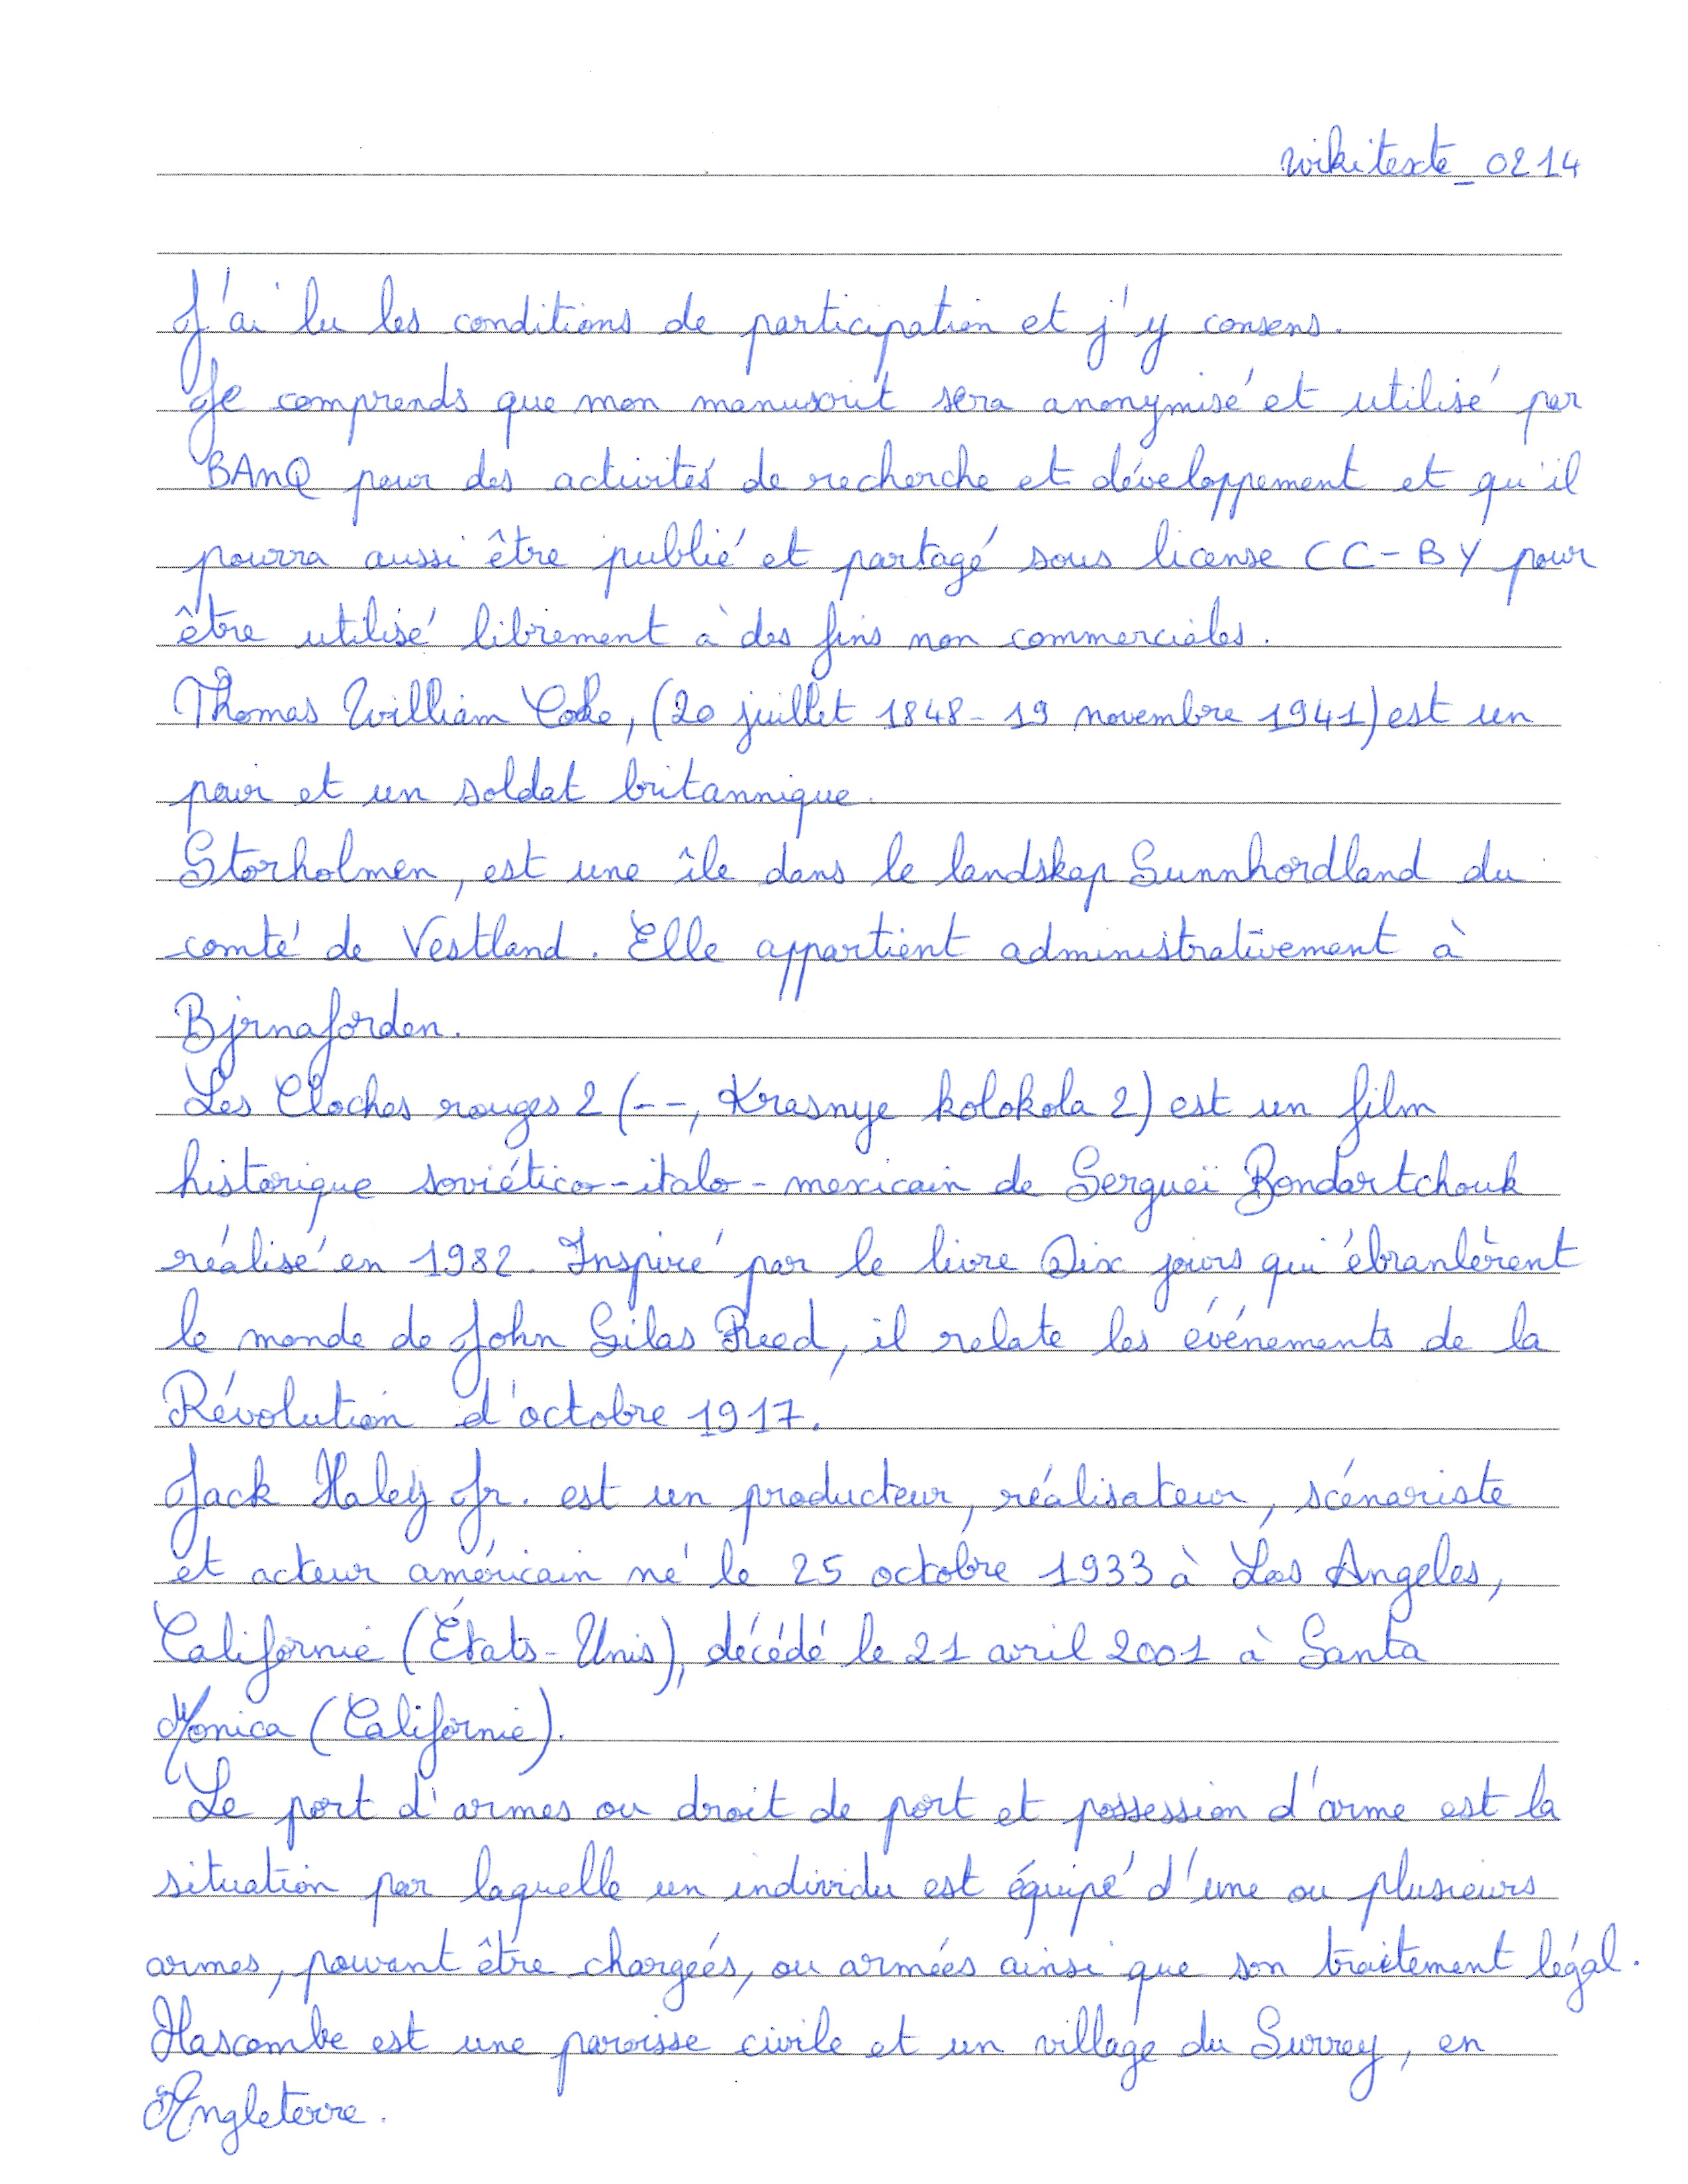 wikitexte_0214
J'ai lu les conditions de participation et j'y consens.
Je comprends que mon manuscrit sera anonymisé et utilisé par
BAnQ pour des activités de recherche et développement et qu'il
pourra aussi être publié et partagé sous license CC-BY pour
être utilisé librement à des fins non commerciales.
Thomas William Coke, (20 juillet 1848 - 19 novembre 1941) est un
pair et un soldat britannique.
Storholmen, est une île dans le landskap Sunnhordland du
comté de Vestland. Elle appartient administrativement à
Bjrnaforden.
Les Cloches rouges 2 (--, Krasnye kolokola 2) est un film
historique soviético-italo-mexicain de Sergueï Bondartchouk
réalisé en 1982. Inspiré par le livre Dix jours qui ébranlèrent
le monde de John Silas Reed, il relate les événements de la
Révolution d'octobre 1917.
Jack Haley Jr. est un producteur, réalisateur, scénariste
et acteur américain né le 25 octobre 1933 à Los Angeles,
Californie (États-Unis), décédé le 21 avril 2001 à Santa
Monica (Californie).
Le port d'armes ou droit de port et possession d'arme est la
situation par laquelle un individu est équipé d'une ou plusieurs
armes, pouvant être chargées, ou armées ainsi que son traitement légal.
Hascombe est une paroisse civile et un village du Surrey, en
Angleterre.